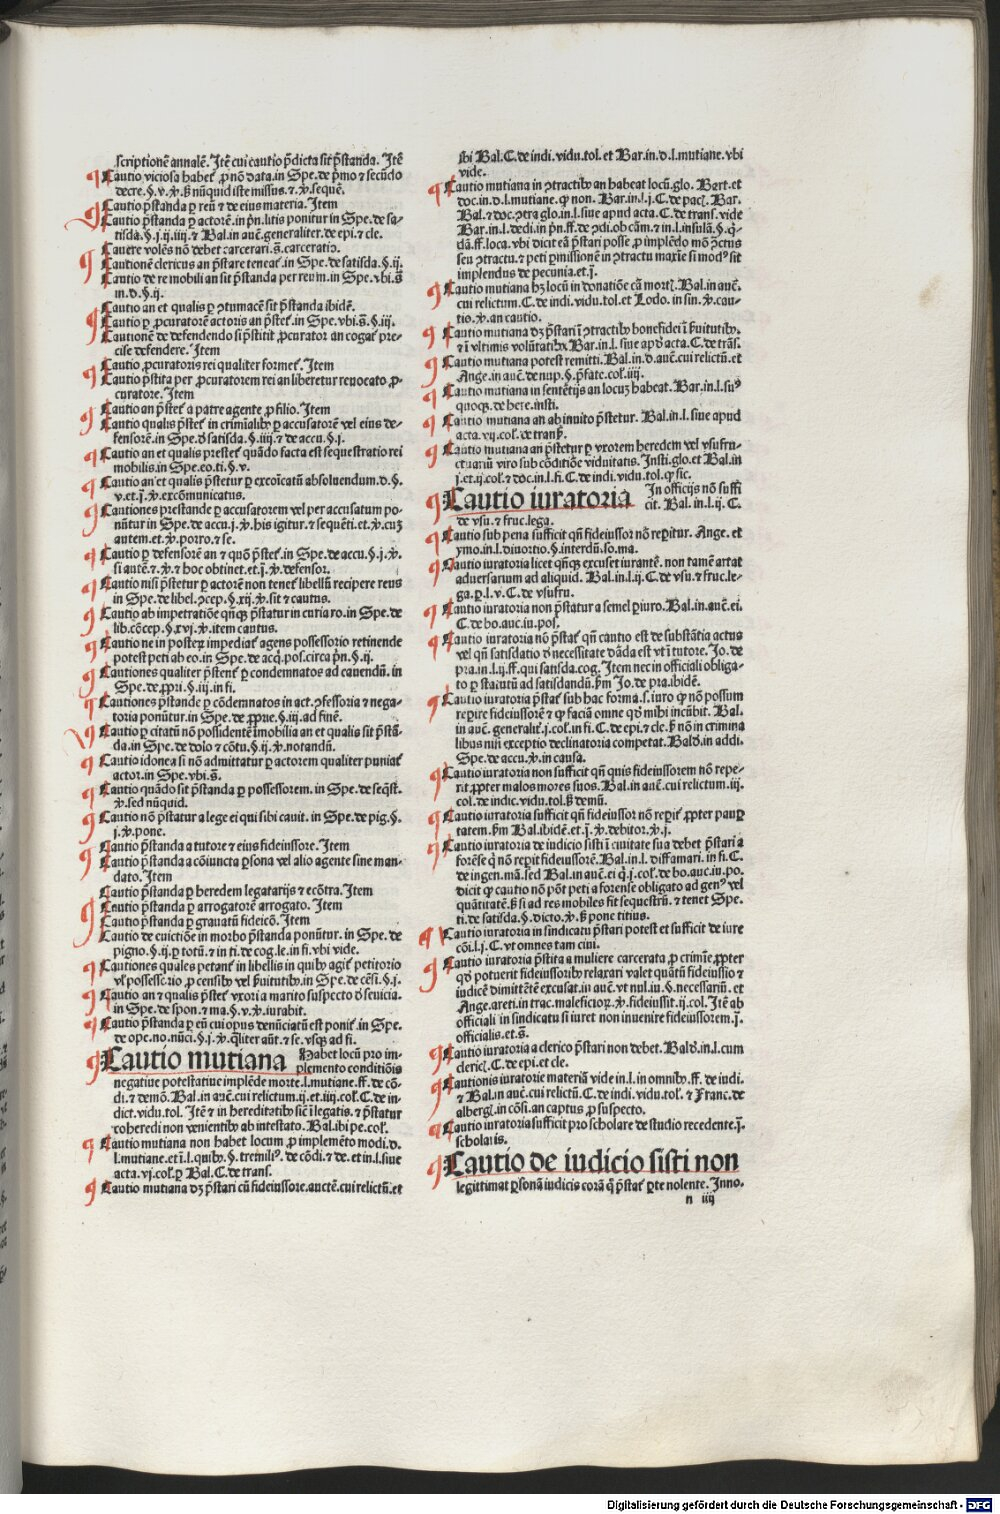 scriptionē annalē. Itē cui cautio p̄dicta sit p̄standa. Itē
Cautio viciosa habet᷑ ꝓ nō data. in Spe. de p̄mo ⁊ secūdo
decre. §. v. ꝟ. ꝙ nūquid iste missus. ⁊ ꝟ. seque.
Cautio p̄standa ꝑ reū ⁊ de eius materia. Item
Cautio p̄standa ꝑ actorē. in p̄n. litis ponitur in Spe. de sa-
tisda. §. j. ij. iiij. ⁊ Bal. in auē. generaliter. de epi. ⁊ cle.
Cavere volēs nō debet carcerari. s̄. carceratio.
Cautionē clericus an p̄stare teneat᷑. in Spe. de satisda. §. ij.
Cautio de re mobili an sit p̄standa per reum. in Spe. vbi. s̄
in. d. §. ij.
Cautio an et qualis ꝑ ꝯtumacē sit p̄standa ibidē.
Cautio ꝑ ꝓcuratorē actoris an p̄stet᷑. in Spe. vbi. s̄. §. iij.
Cautionē de defendendo si p̄stitit ꝓcurator an cogat᷑ pre-
cise defendere. Item
Cautio ꝓcuratoris rei qualiter formet᷑. Item
Cautio p̄stita per ꝓcuratorem rei an liberetur reuocato ꝓ-
curatore. Item
Cautio an p̄stet᷑ a patre agente ꝓ filio. Item
Cautio qualis p̄stet᷑ in crimīalibꝫ ꝑ accusatorē vel eius de-
fensorē. in Spe. ð satisda. §. iiij. ⁊ de accu. §. j.
Cautio an et qualis prestet᷑ quādo facta est sequestratio rei
mobilis. in Spe. eo. ti. §. v.
Cautio an et qualis p̄stetur ꝑ excoīcatū absoluendum. d. §.
v. et. j̄. ꝟ. excōmunicatus.
Cautiones prestande ꝑ accusatorem vel per accusatum po-
nūtur in Spe. de accu. j. ꝟ. his igitur. ⁊ sequēti. et. ꝟ. cuꝫ
autem. et. ꝟ. porro. ⁊ se.
Cautio ꝑ defensorē an ⁊ quō p̄stet᷑. in Spe. de accu. §. j. ꝟ.
si autē. ⁊. ꝟ. ⁊ hoc obtinet. et. j̄. ꝟ. defensor.
Cautio nisi p̄stetur ꝑ actorē non tenet᷑ libellū recipere reus
in Spe. de libel. ꝯcep. §. xij. ꝟ. sit ⁊ cautus.
Cautio ab impetratiōe qn̄qꝫ p̄statur in curia ro. in Spe. de
lib. cōcep. §. xvj. ꝟ. item cautus.
Cautio ne in posteꝝ impediat᷑ agens possessorio retinende
potest peti ab eo. in Spe. de acq̄. pos. circa p̄n. §. ij.
Cautiones qualiter p̄stent᷑ ꝑ condemnatos ad cauendū. in
Spe. de ꝓpri. §. iij. in fi.
Cautiones p̄stande ꝑ cōdemnatos in act. ꝯfessoria ⁊ nega-
toria ponūtur. in Spe. de ꝓprie. §. iij. ad finē.
Cautio ꝑ citatū nō possidentē immobilia an et qualis sit p̄stā-
da. in Spe. de dolo ⁊ cōtu. §. ij. ꝟ. notandū.
Cautio idonea si nō admittatur ꝑ actorem qualiter puniat᷑
actor. in Spe. vbi. s̄.
Cautio quādo sit p̄standa ꝑ possessorem. in Spe. de seq̄st.
ꝟ. sed nūquid.
Cautio nō p̄statur a lege ei qui sibi cauit. in Spe. de pig. §.
j. ꝟ. pone.
Cautio p̄standa a tutore ⁊ eius fideiussore. Item
Cautio p̄standa a cōiuncta ꝑsona vel alio agente sine man-
dato. Item
Cautio p̄standa ꝑ heredem legatarijs ⁊ ecōtra. Item
Cautio p̄standa ꝑ arrogatorē arrogato. Item
Cautio p̄standa ꝑ grauatū fideicō. Item
Cautio de euictiōe in morbo p̄standa ponūtur. in Spe. de
pigno. §. ij. ꝑ totū. ⁊ in ti. de cog. le. in fi. vbi vide.
Cautiones quales petant᷑ in libellis in quibꝫ agit᷑ petitorio
vl̓ possessorio, ꝓ censibꝫ vel s̄uitutibꝫ. in Spe. de cēsi. §. j.
Cautio an ⁊ qualis p̄stet᷑ vxori a marito suspecto ð seuicia.
in Spe. de spon. ⁊ ma. §. v. ꝟ. iurabit.
Cautio p̄standa ꝑ eū cui opus denūciatū est ponit᷑. in Spe.
de ope. no. nūci. §. j. ꝟ. q̄liter aūt. ⁊ se. vsqꝫ ad fi.
Cautio mutiana Habet locū pro im-
plemento conditiōis
negatiue potestatiue implēde morte. l. mutiane. ff. de cō-
di. ⁊ demō. Bal. in auē. cui relictum. ij. et. iiij. col̓. C. de in-
dict. vidu. tol. Itē ⁊ in hereditatibꝫ sicē l legatis. ⁊ p̄statur
coheredi non venientibꝫ ab intestato. Bal. ibi pe. col̓.
Cautio mutiana non habet locum ꝓ implemēto modi. d.
l. mutiane. et ī l. quibꝫ. §. tremilꝰ. de cōdi. ⁊ de. et in. l. siue
acta. vj. col̓. ꝑ Bal. C. de trans.
Cautio mutiana dꝫ p̄stari cū fideiussore. auctē. cui relictū. et
ibi Bal. C. de indi. vidu. tol. et Bar. in. d. l. mutiane. vbi
vide.
Cautio mutiana in ꝯtractibꝫ an habeat locū. glo. Bart. et
doc. in. d. l. mutiane. ꝙ non. Bar. in. l. j. C. de pact̓. Bar.
Bal. ⁊ doc. ꝯtra glo. in l. siue apud acta. C. de trans. vide
Bar. in l. dedi. in p̄n. ff. de ꝯdi. ob cām. ⁊ in l. insulā. §. q̄-
dā. ff. loca. vbi dicit eā p̄stari posse ꝓ implēdo mō ꝯctus
seu ꝯtractu. ⁊ peti ꝑmissionē in ꝯtractu maxīe si modꝰ sit
implendus de pecunia. et. j̄.
Cautio mutiana hꝫ locū in donatiōe cā mort̓. Bal. in auē.
cui relictum. C. de indi. vidu. tol. et Lodo. in sin. ꝟ. cau-
tio. ꝟ. an cautio.
Cautio mutiana dꝫ p̄stari ī ꝯtractibꝫ bonefidei ī s̄uitutibꝫ.
⁊ ī vltimis volūtatibꝫ. Bar. in. l. siue apud acta. C. de trās.
Cautio mutiana potest remitti. Bal. in. d. auē. cui relictū. et
Ange. in auē. de nup. §. p̄fate. col̓. iiij.
Cautio mutiana in sentētijs an locuꝫ habeat. Bar. in. l. suꝰ
quoqꝫ. de here. insti.
Cautio mutiana an ab inuito p̄stetur. Bal. in. l. siue apud
acta. vij. col̓. de trans̓.
Cautio mutiana an p̄stetur ꝑ vxorem heredem vel vsufru-
ctuariū viro sub cōditiōe viduitatis. Insti. glo. et Bal. in
j. et. ij. col̓. ⁊ doc. in. l. fi. C. de indi. vidu. tol. ꝙ sic.
Cautio iuratoria In officijs nō suffi
cit. Bal. in. l. ij. C.
de vsu. ⁊ fruc. lega.
Cautio sub pena sufficit qn̄ fideiussor nō reꝑitur. Ange. et
ymo. in. l. diuortio. §. interdū. so. ma.
Cautio iuratoria licet qn̄qꝫ excuset iurantē. non tamē artat
aduersarium ad aliquid. Bal. in. l. ij. C. de vsu. ⁊ fruc. le-
ga. ꝑ. l. v. C. de vsufru.
Cautio iuratoria non p̄statur a semel ꝑiuro. Bal. in. auē. ei.
C. de bo. auc. iu. pos.
Cautio iuratoria nō p̄stat᷑ qn̄ cautio est de substātia actus
vel qn̄ satisdatio ð necessitate dāda est vt ī tutore. Jo. de
pra. in. l. ij. ff. qui satisda. cog. Item nec in officiali obliga-
to ꝑ statutū ad satisdandū. s̄m Jo. de pra. ibidē.
Cautio iuratoria p̄stat᷑ sub hac forma. s. iuro ꝙ nō possum
reꝑire fideiussorē ⁊ ꝙ faciā omne qd̓ mihi incūbit. Bal.
in auē. generalit᷑. j. col̓. in fi. C. de epi. ⁊ cle. s̓ nō in crimina
libus nisi exceptio declinatoria competat. Bald̓. in addi.
Spe. de accu. ꝟ. in causa.
Cautio iuratoria non sufficit qn̄ quis fideiussorem nō repe-
rit ꝓpter malos mores suos. Bal. in auē. cui relictum. iij.
col. de indic. vidu. tol. s̓ demū.
Cautio iuratoria sufficit qn̄ fideiussor nō reꝑit᷑ ꝓpter pauꝑ
tatem. s̄m Bal. ibidē. et. j̄. ꝟ. debitor. ꝟ. j.
Cautio iuratoria de iudicio sisti ī ciuitate sua debet p̄stari a
forēse q̄ nō reꝑit fideiussorē. Bal. in. l. diffamari. in fi. C.
de ingen. mā. sed Bal. in auē. ei q̄. j. col̓. de bo. auc. iu. po.
dicit ꝙ cautio nō pōt peti a forense obligato ad genꝰ vel
quātitatē. s̓ si ad res mobiles fit sequestrū. ⁊ tenet Spe.
ti. de satisda. §. dicto. ꝟ. s̓ pone titius.
Cautio iuratoria in sindicatu p̄stari potest et sufficit de iure
cōi. l. j. C. vt omnes tam ciui.
Cautio iuratoria p̄stita a muliere carcerata ꝓ crimīe ꝓpter
qd̓ potuerit fideiussoribꝫ relaxari valet quātū fideiussio ⁊
iudicē dimittētē excusat. in auē. vt nul. iu. §. necessariū. et
Ange. areti. in trac. maleficioꝝ. ꝟ. fideiussit. ij. col. Itē ab
officiali in sindicatu si iuret non inuenire fideiussorem. j̄.
officialis. et. s̄.
Cautio iuratoria a clerico p̄stari non debet. Bald̓. in. l. cum
clerici. C. de epi. et cle.
Cautionis iuratorie materiā vide in. l. in omnibꝫ. ff. de iudi.
⁊ Bal. in auē. cui relictū. C. de indi. vidu. tol̓. ⁊ Franc. de
alberg̓. in cōsi. an captus ꝓ suspecto.
Cautio iuratoria sufficit pro scholare de studio recedente. j̄.
scholaris.
Cautio de iudicio sisti non
legittimat ꝑsonā iudicis corā q̄ p̄stat᷑ ꝑte nolente. Inno.
n iiij
Digitalisierung gefördert durch die Deutsche Forschungsgemeinschaft - DFG